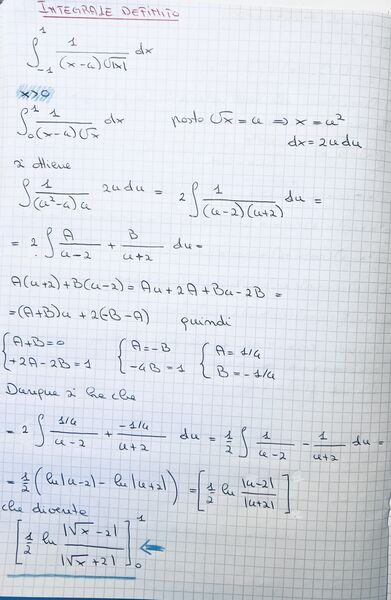 INTEGRALE DEFINITO
∫_{-1}^{1} 1/((x-4)√|x|) dx
x>0
∫_0^1 1/((x-4)√x) dx posto √x = u ⇒ x = u²
dx = 2u du
si ottiene
∫ 1/((u²-4)u) 2u du = 2∫ 1/((u-2)(u+2)) du =
= 2∫ A/(u-2) + B/(u+2) du =
A(u+2)+B(u-2) = Au+2A+Bu-2B =
=(A+B)u + 2(-B-A) quindi
{A+B=0 {A=-B {A=1/4
{+2A-2B=1 {-4B=1 {B=-1/4
Dunque si ha che
= 2∫ (1/4)/(u-2) + (-1/4)/(u+2) du = 1/2 ∫ 1/(u-2) - 1/(u+2) du =
= 1/2 (ln|u-2| - ln|u+2|) = [1/2 ln |u-2|/|u+2|]
che diventa
[1/2 ln |√x-2|/|√x+2|]_0^1 ←